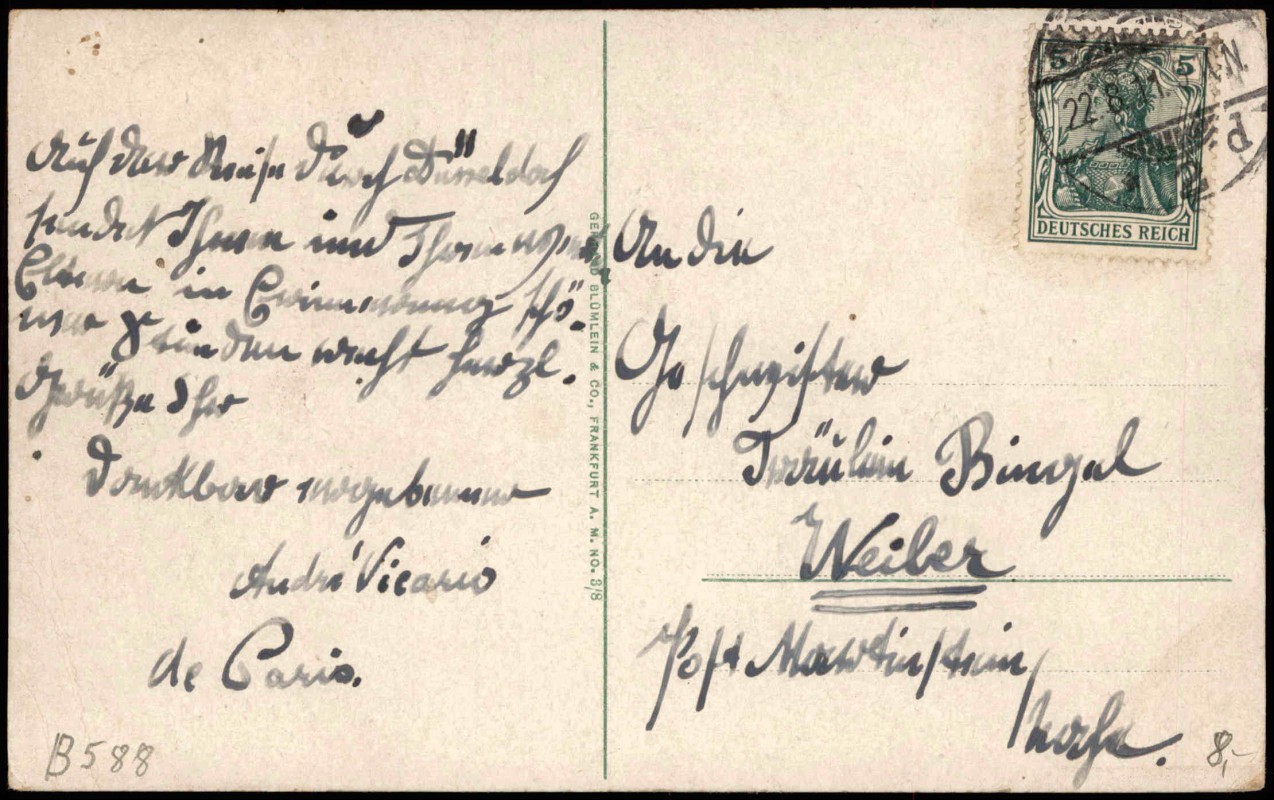 Auf der Reise durch Düsseldorf
sendet Ihnen und Ihren werten
Eltern in Erinnerung schö-
ner Stunden recht herzl.
Grüße Ihr
Dankbar ergebener
André Vicario
de Paris.
B588
GEBRÜD BLÜMLEIN & CO., FRANKFURT A. M. NO. 3/8
5 5
22.8.11. N.
DEUTSCHES REICH
An die
Geschwister
Fräulein Bingel
Weiler
Post Martinstein/
Nahe.
8,-